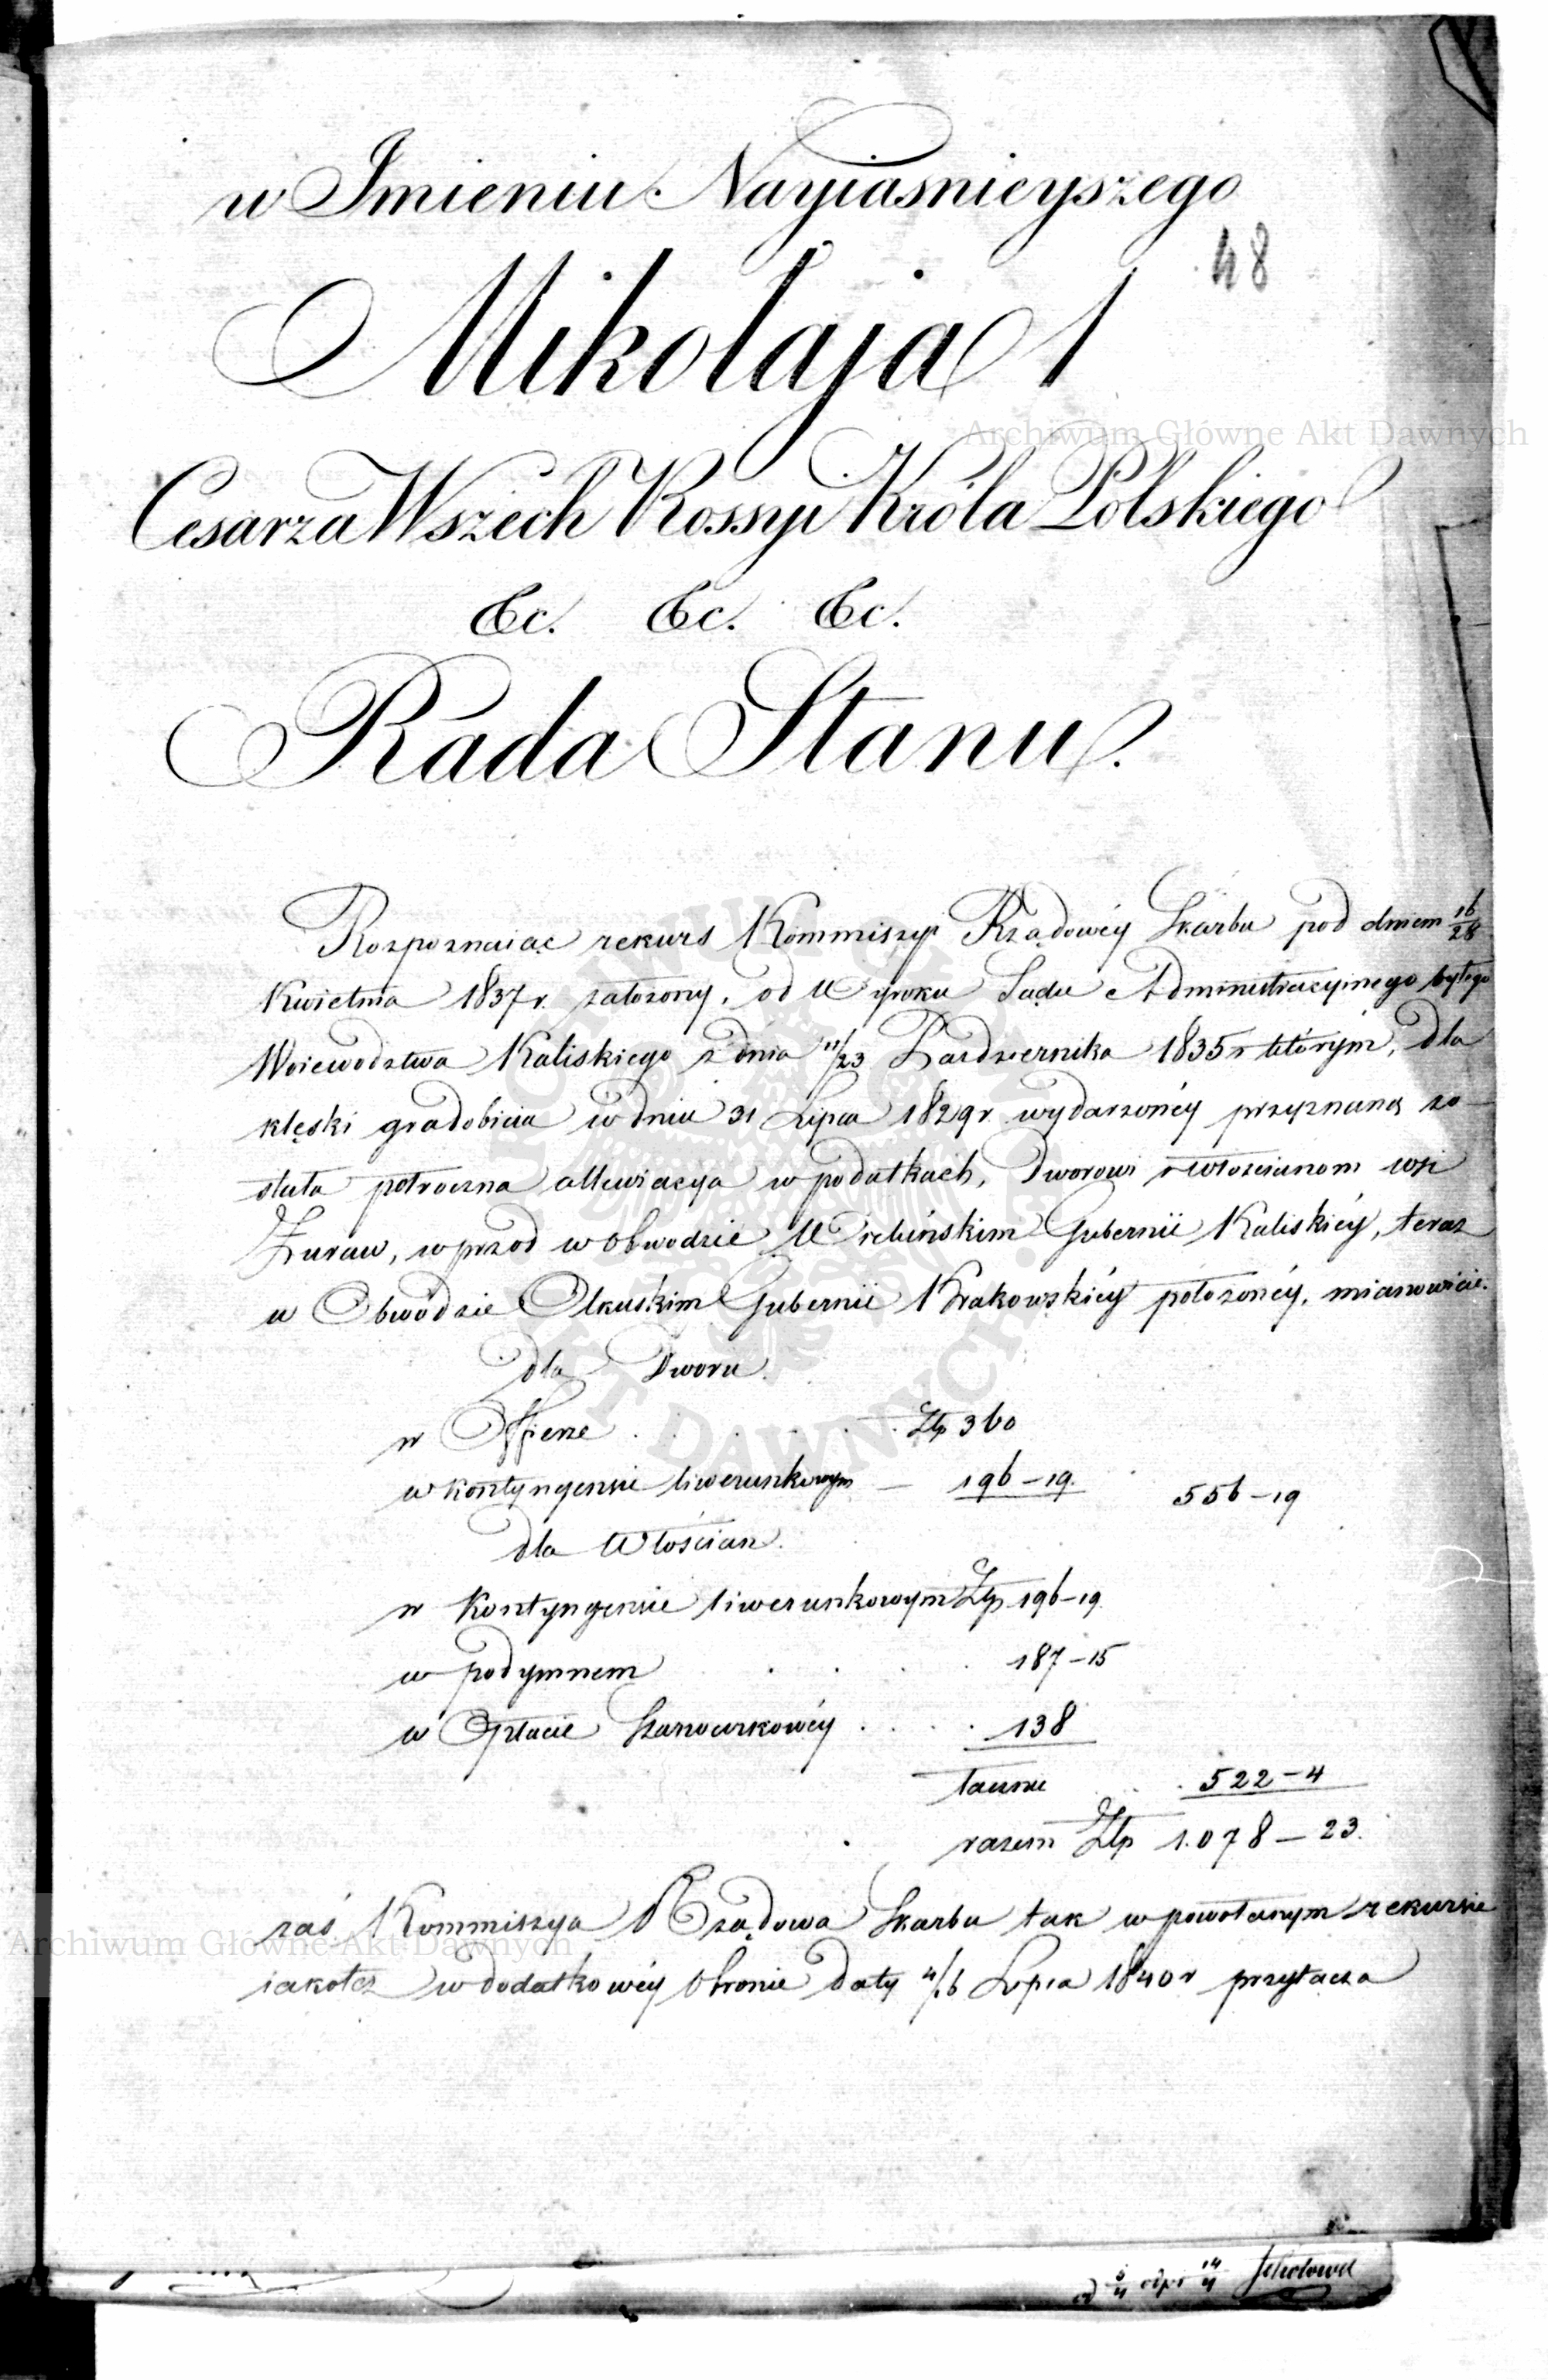 w Imieniu Nayiasnieyszego
48
Mikołaja 1
Cesarza Wszech Rossyi Króla Polskiego
&c. &c. &c.
Rada Stanu.
Rozpoznaiąc rekurs Kommiszyi Rządowéy Skarbu pod dniem 16/28
Kwietnia 1837 r. założony, od Wyroku Sądu Administracyinego byłego
Woiewodztwa Kaliskiego z dnia 11/23 Pazdziernika 1835 r którym, dla
klęski gradobicia w dniu 31 Lipca 1829 r. wydarzonéy przyznaną zo-
stała potroczna allewiacya w podatkach, Dworowi i włościanom wsi
Żuraw, wprzod w Obwodzie Wieluńskim Gubernii Kaliskiéy, teraz
w Obwodzie Olkuskim Gubernii Krakowskiéy położonéy, mianowicie.
dla Dworu.
w Offierze . . . . . Złp 360
w kontyngensie liwerunkowym — 196–19. 556–19
dla Włościan.
w Kontyngensie liwerunkowym Złp 196–19.
w podymnem . . . . 187–15
w Opłacie Szarwarkowéy . . . . 138
łącznie . . . 522–4
razem Złp 1.078–23.
zaś Kommiszya Rządowa Skarbu tak w powołanym rekursie
iakotez w dodatkowéy Obronie daty 4/16 Lipca 1840 r przytacza
Archiwum Główne Akt Dawnych
Archiwum Główne Akt Dawnych
ARCHIWUM GŁÓWNE AKT DAWNYCH